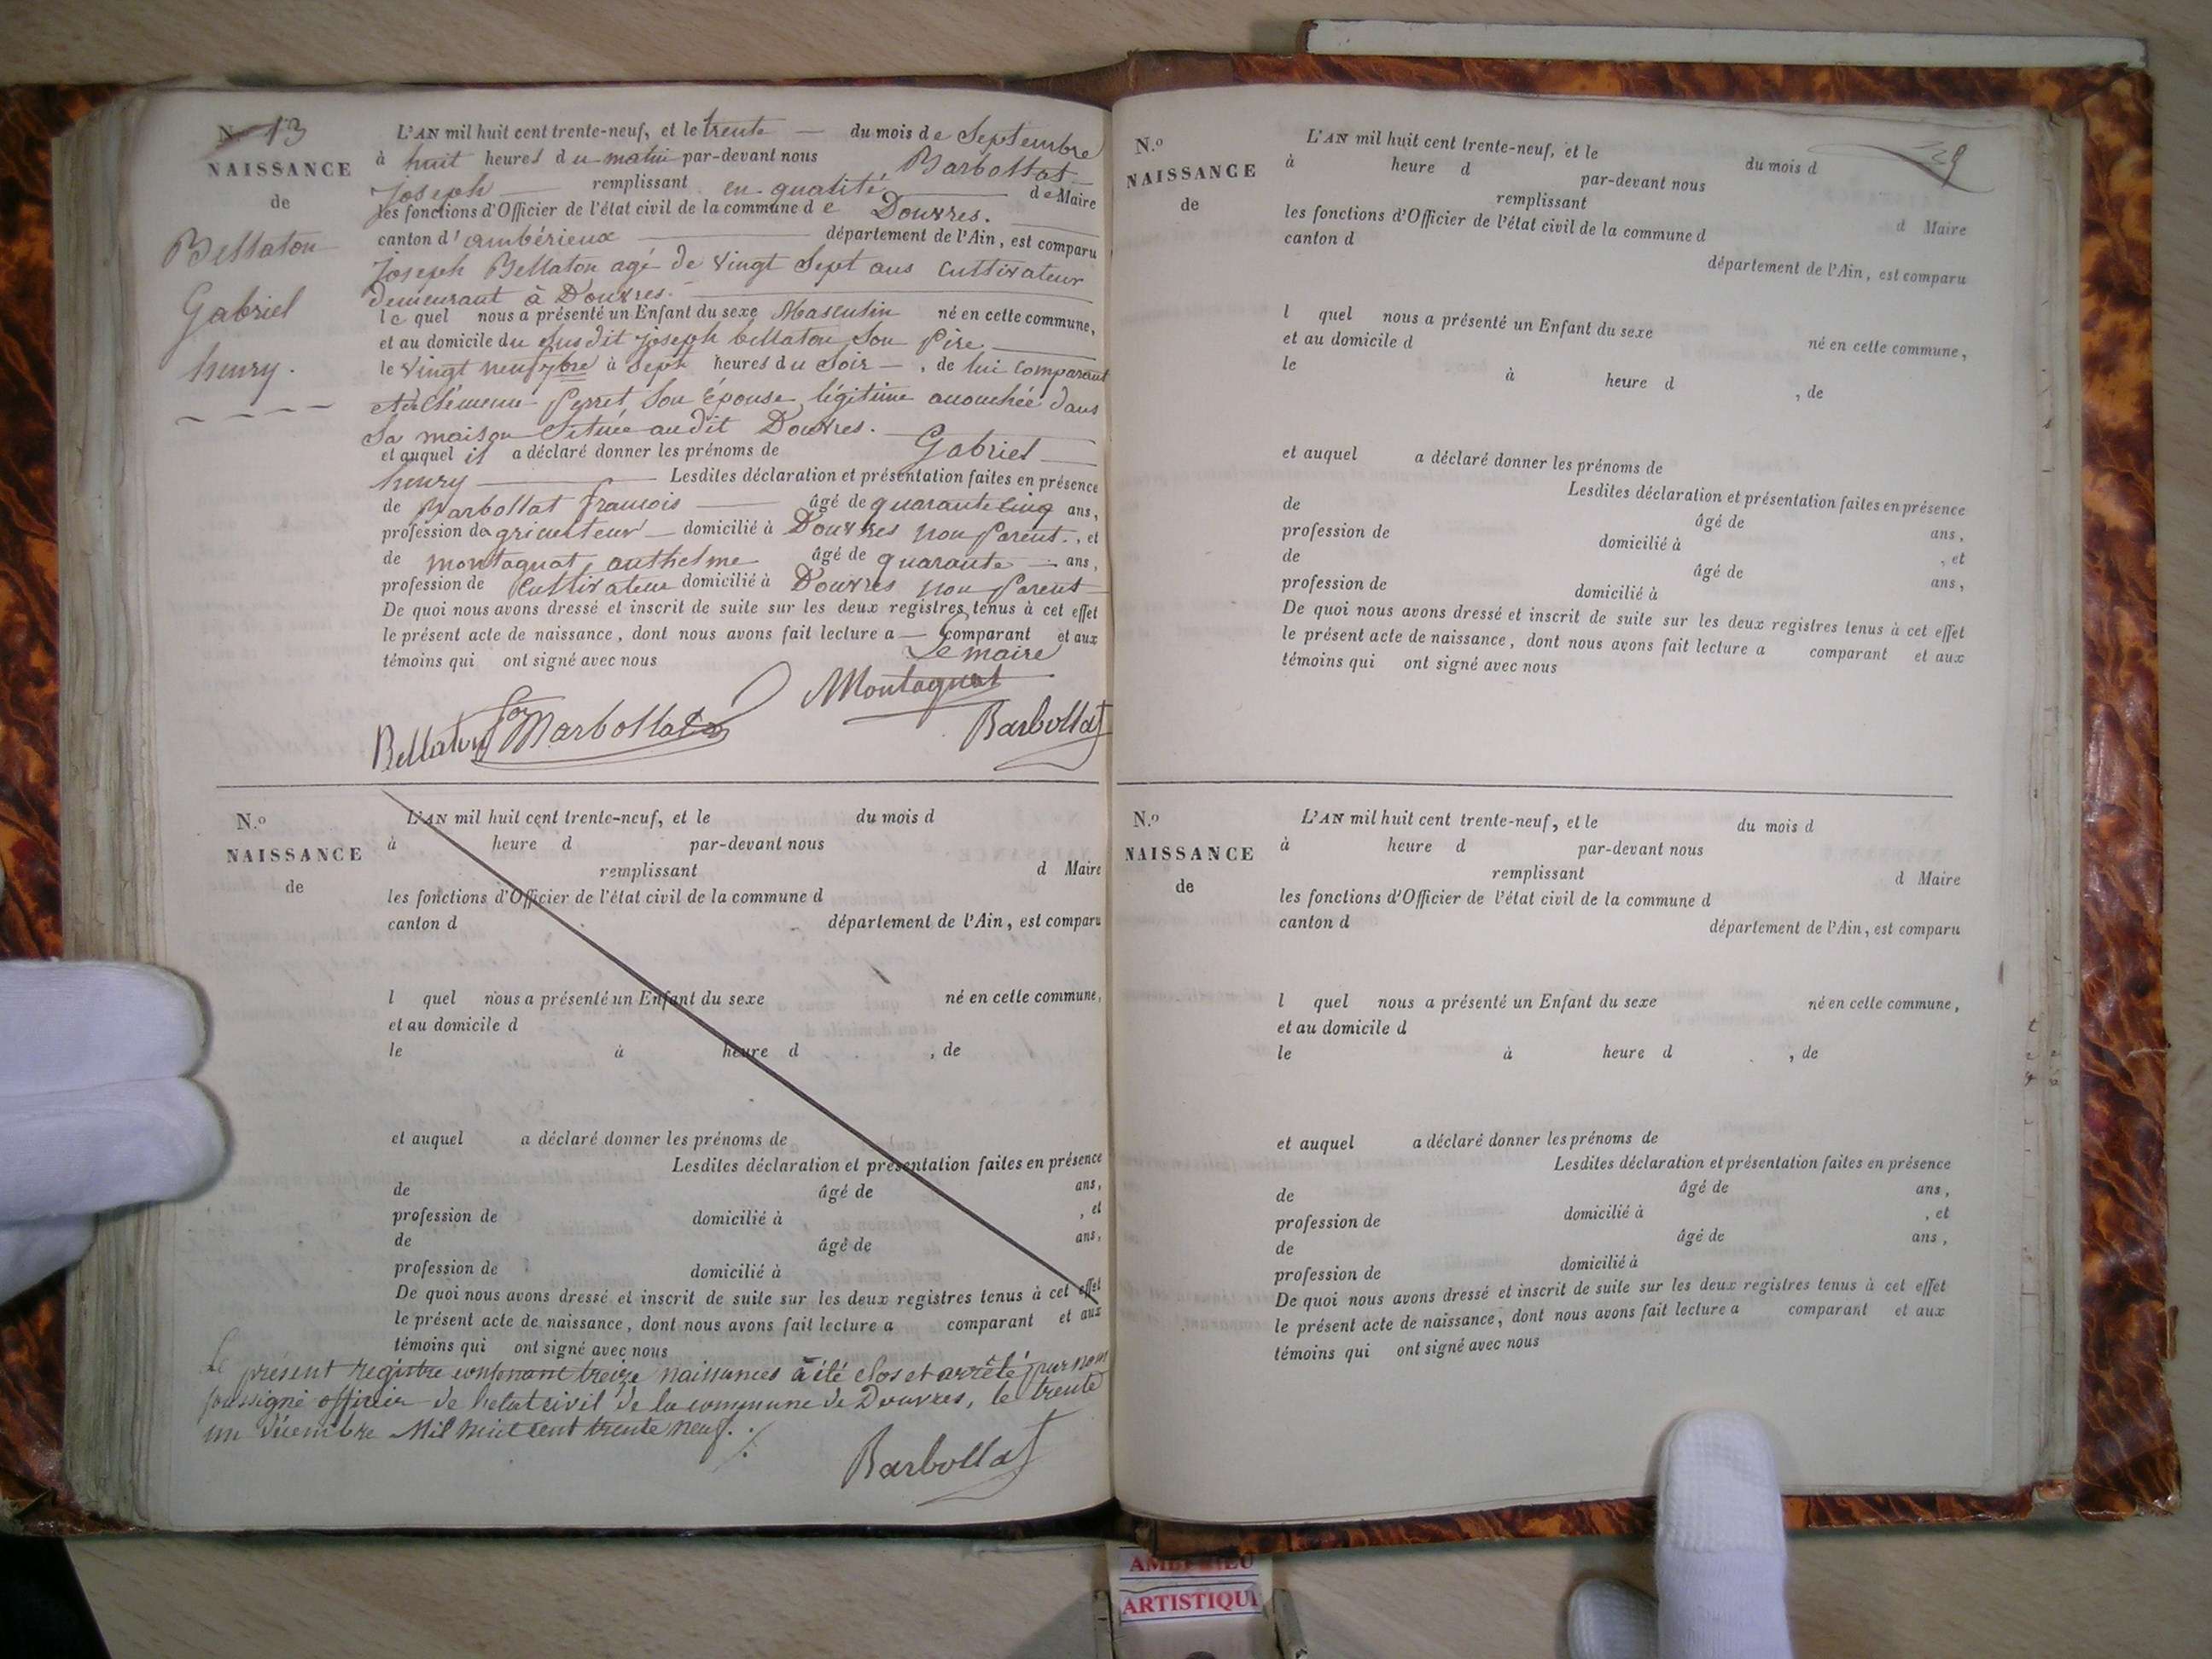 N.º 13
NAISSANCE
de
Bellaton
Gabriel
henry.
L'AN mil huit cent trente-neuf, et le trente du mois de Septembre
à huit heures du matin par-devant nous Barbollat
Joseph remplissant en qualité de Maire
les fonctions d'Officier de l'état civil de la commune de Douvres.
canton d'ambérieux département de l'Ain, est comparu
Joseph Bellaton agé de vingt Sept ans Cultivateur
demeurant à Douvres.
le quel nous a présenté un Enfant du sexe Masculin né en cette commune,
et au domicile du Susdit joseph bellaton Son Père
le vingt neuf 7bre à Sept heures du Soir, de lui comparant
et de Perret Son Épouse légitime accouchée dans
Sa maison Située audit Douvres.
et auquel il a déclaré donner les prénoms de Gabriel
henry Lesdites déclaration et présentation faites en présence
de Marbollat françois âgé de quarante cinq ans,
profession d'agriculteur domicilié à Douvres non Parent, et
de montagnat, anthelme âgé de quarante ans,
profession de Cultivateur domicilié à Douvres non Parent
De quoi nous avons dressé et inscrit de suite sur les deux registres tenus à cet effet
le présent acte de naissance, dont nous avons fait lecture a comparant et aux
témoins qui ont signé avec nous Le maire
Montagnat
Bellaton Marbollat Barbollat
N.º
NAISSANCE
de
L'AN mil huit cent trente-neuf, et le du mois d
à heure d par-devant nous
remplissant d Maire
les fonctions d'Officier de l'état civil de la commune d
canton d département de l'Ain, est comparu
l quel nous a présenté un Enfant du sexe né en cette commune,
et au domicile d
le à heure d , de
et auquel a déclaré donner les prénoms de
Lesdites déclaration et présentation faites en présence
de âgé de ans,
profession de domicilié à , et
de âgé de ans,
profession de domicilié à
De quoi nous avons dressé et inscrit de suite sur les deux registres tenus à cet effet
le présent acte de naissance, dont nous avons fait lecture a comparant et aux
témoins qui ont signé avec nous
Le présent registre contenant treize naissances à été clos et arrêté par nous
soussigné officier de l'etat civil de la commune de Douvres, le trente
un décembre Mil huit cent trente neuf.
Barbollat
29
N.º
NAISSANCE
de
L'AN mil huit cent trente-neuf, et le du mois d
à heure d par-devant nous
remplissant d Maire
les fonctions d'Officier de l'état civil de la commune d
canton d département de l'Ain, est comparu
l quel nous a présenté un Enfant du sexe né en cette commune,
et au domicile d
le à heure d , de
et auquel a déclaré donner les prénoms de
Lesdites déclaration et présentation faites en présence
de âgé de ans,
profession de domicilié à , et
de âgé de ans,
profession de domicilié à
De quoi nous avons dressé et inscrit de suite sur les deux registres tenus à cet effet
le présent acte de naissance, dont nous avons fait lecture a comparant et aux
témoins qui ont signé avec nous
N.º
NAISSANCE
de
L'AN mil huit cent trente-neuf, et le du mois d
à heure d par-devant nous
remplissant d Maire
les fonctions d'Officier de l'état civil de la commune d
canton d département de l'Ain, est comparu
l quel nous a présenté un Enfant du sexe né en cette commune,
et au domicile d
le à heure d , de
et auquel a déclaré donner les prénoms de
Lesdites déclaration et présentation faites en présence
de âgé de ans,
profession de domicilié à , et
de âgé de ans,
profession de domicilié à
De quoi nous avons dressé et inscrit de suite sur les deux registres tenus à cet effet
le présent acte de naissance, dont nous avons fait lecture a comparant et aux
témoins qui ont signé avec nous
ARTISTIQU